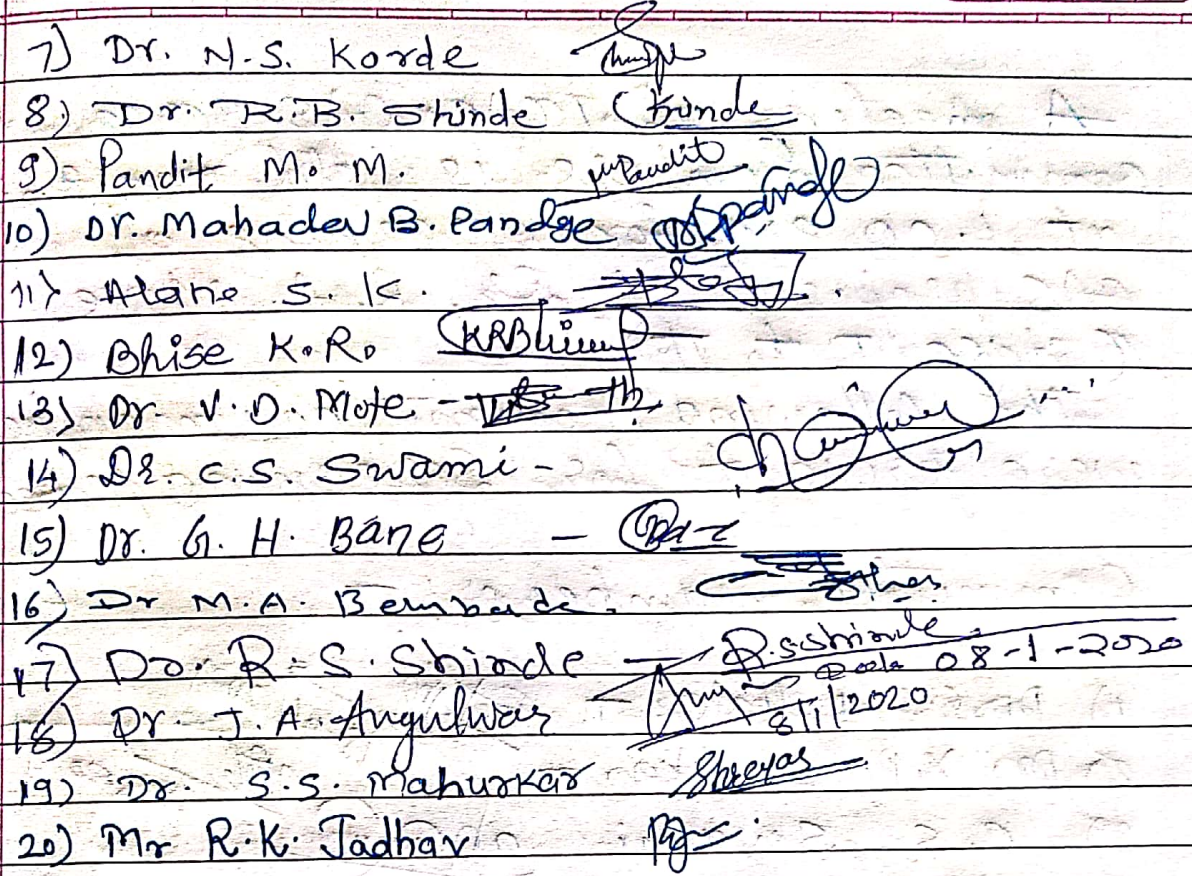 7) Dr. N.S. Korde
8) Dr. R.B. Shinde Shinde
9) Pandit M. M. Pandit
10) Dr. Mahadev B. Pandge
11) Alane S. K.
12) Bhise K. R. KRBhise
13) Dr. V.D. Mote -
14) Dr. C.S. Swami -
15) Dr. G. H. Bane -
16) Dr M.A. Bembade.
17) Dr. R.S. Shinde - R.S.Shinde
08-1-2020
18) Dr. J.A. Angulwar 8/1/2020
19) Dr. S.S. Mahurkar Shreyas
20) Mr R.K. Jadhav